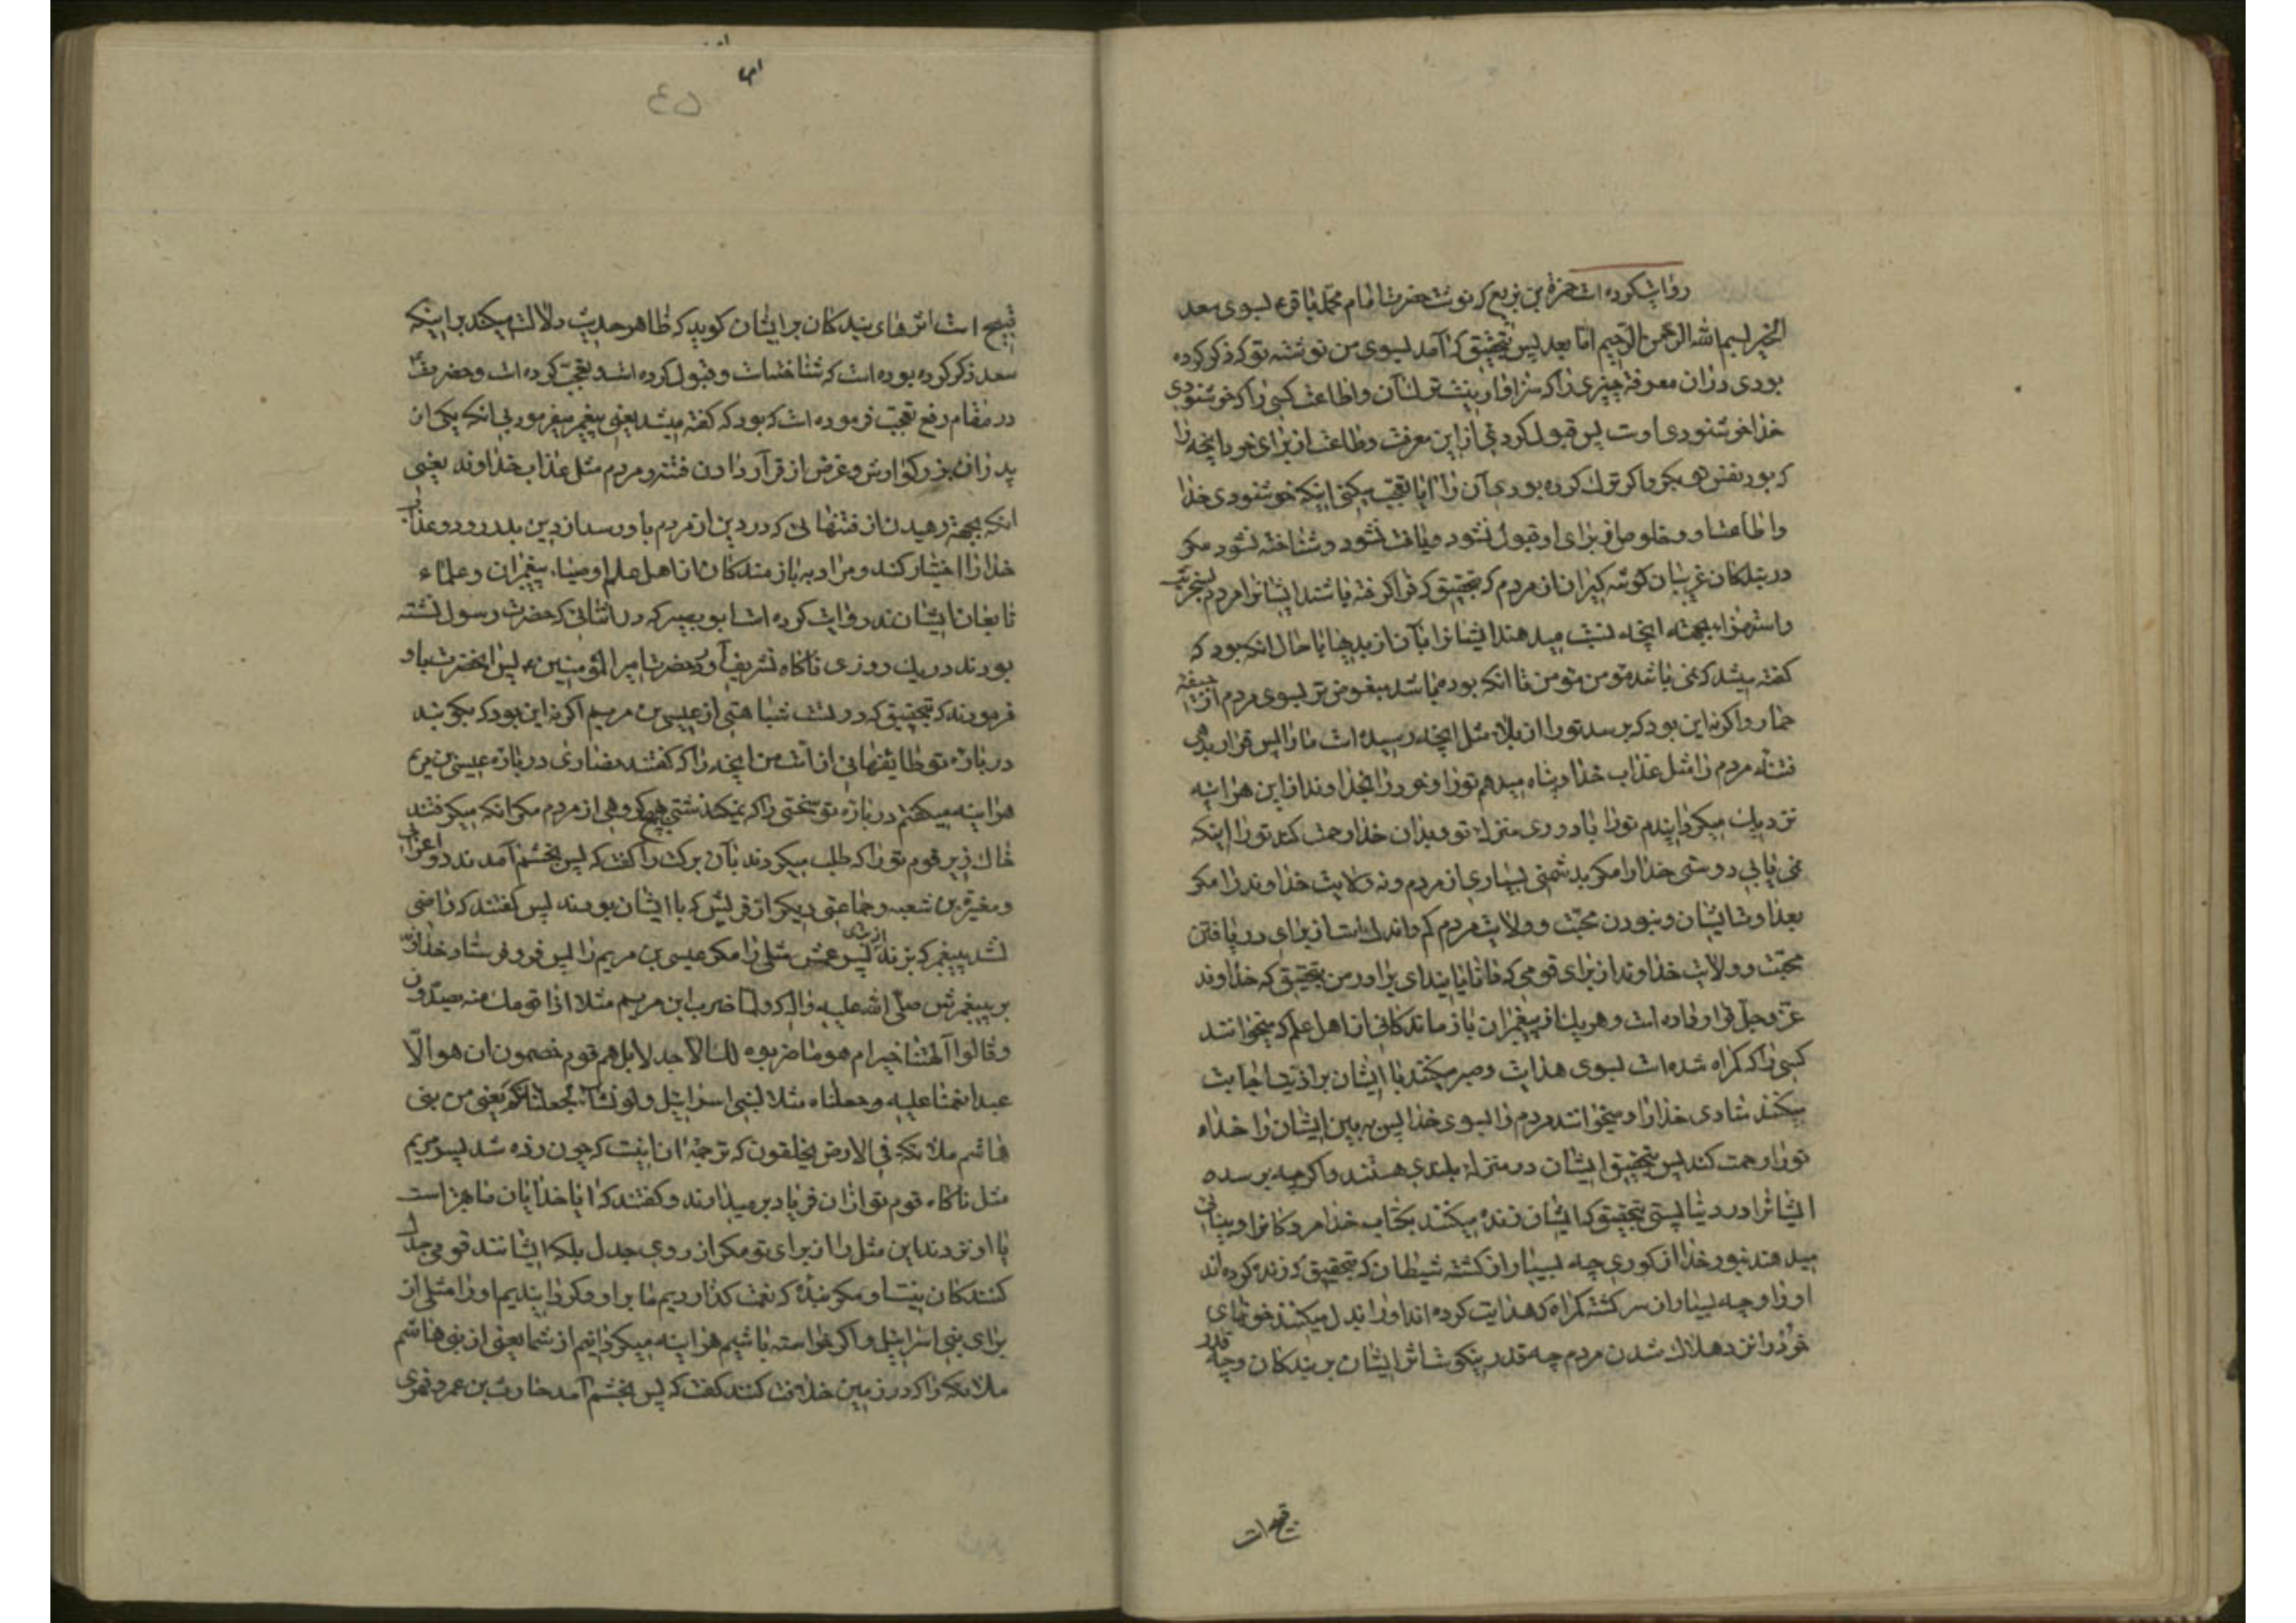 روایت کرده است حمزة بن بزیع که نوشت حضرت امام محمد باقر ع بسوی سعد
الخیر بسم الله الرحمن الرحیم اما بعد پس بتحقیق که آمد بسوی من نوشته تو که ذکر کرده
بودی در آن معرفة چیزی را که سزاوار نیست ترک آن و اطاعت کسی را که خوشنودی
خدا خوشنودی اوست پس قبول کردی از این معرفت و طاعت از برای خود آنچه را
که بود نفس هیکر واکر ترک کرده بودی آن را ایا تعجب میکنی اینکه خوشنودی خدا
و اطاعت او و خلوص از برای او قبول نشود و یافت نشود و شناخته نشود مکر
در بندکان غریبان کوشه کیران از مردم که بتحقیق که فرا کرفته باشند ایشانرا مردم بسخریت
و استهزاء بجهته آنچه نسبت میدهند ایشانرا بآن از بدیها با حال انکه بود که
کفته میشد که نمی باشد مؤمن مؤمن تا انکه بوده باشد مبغوض تر بسوی مردم از جیفه
حمار و اکر نه این بود که برسد تو را از بلاء مثل آنچه رسیده است ما را پس قرار بدهی
فتنه مردم را مثل عذاب خدا و پناه میدهم تو را و خود را بخداوند از این هراینه
نزدیک میکردانیدم تو را با دوری منزله تو و بدان خدا رحمت کند تو را اینکه
نمی یابی دوستی خدا را مکر بدشمنی بسیاری از مردم و نه ولایت خداوند را مکر
بعداوت ایشان و نبودن محبت و ولایت مردم کم و اندک است از برای دریافتن
محبت و ولایت خداوند از برای قومی که دانایانند ای برادر من بتحقیق که خداوند
عز و جل قرار داده است و هر یک از پیغمبران بازماندکانی از اهل علم که میخوانند
کسی را که کمراه شده است بسوی هدایت و صبر میکنند با ایشان بر اذیتها اجابت
میکنند منادی خدا را و میخوانند مردم را بسوی خدا پس به بین ایشان را خداء
تو را رحمت کند پس بتحقیق ایشان در منزله بلندی هستند و اکر چه برسد
ایشانرا در دنیا پستی بتحقیق که ایشان زنده میکنند بکتاب خدا مردکانرا و بینائی
میدهند بنور خدا از کوری چه بسیار از کشته شیطان که بتحقیق که زنده کرده اند
او را و چه بسیار از سرکشته کمراه که هدایت کرده اند او را بذل میکنند خونهای
خود را نزد هلاک شدن مردم چه قدر نیکوست اثر ایشان بر بندکان و چه قدر
قبیح است
٤٥
قبیح است اثرهای بندکان بر ایشان کوید که ظاهر حدیث دلالت میکند بر اینکه
سعد ذکر کرده بوده است که شناخته است و قبول کرده است و تعجب کرده است و حضرت
در مقام رفع تعجب فرموده است که بود که کفته میشد یعنی پیغمبر میفرمود بی انکه یکی از
پدران بزرکوارش و غرض از قرار دادن فتنه مردم مثل عذاب خداوند یعنی
انکه بجهة رهیدن از فتنهائی که در دین از مردم باو رسد از دین بدر رود و عذاب
خدا را اختیار کند و مراد به بازمندکان از اهل علم اوصیاء پیغمبران و علماء
تابعان ایشانند و روایت کرده است ابو بصیر که در اثنائی که حضرت رسول نشسته
بودند در یک روزی ناکاه تشریف آورد حضرت امیر المؤمنین ع پس انحضرت باو
فرمودند که بتحقیق که در تست شباهتی از عیسی بن مریم اکر نه این بود که بکویند
درباره تو طایفهائی از امت من آنچه را که کفتند نصاری درباره عیسی بن مریم
هراینه میکفتم درباره تو سخنی را که نمیکذشتی بهیچ کروهی از مردم مکر انکه میکرفتند
خاک زیر قدم تو را که طلب میکردند بآن برکت را کفت که پس بخشم آمدند دو اعرابی
و مغیرة بن شعبه و جماعتی دیکر از قریش که با ایشان بودند پس کفتند که راضی
نشد پیغمبر که بزند از برای پسر عمش مثلی را مکر عیسی بن مریم را پس فرو فرستاد خداوند
بر پیغمبرش صلی الله علیه و اله که ولما ضرب ابن مریم مثلا اذا قومك منه یصدون
و قالوا آلهتنا خیر ام هو ما ضربوه لك الا جدلا بل هم قوم خصمون ان هو الا
عبد انعمنا علیه و جعلناه مثلا لبنی اسرائیل و لو نشاء لجعلنا منکم یعنی من بنی
هاشم ملائکة فی الارض یخلفون که ترجمهٔ ان اینست که چون زده شد پسر مریم
مثل ناکاه قوم تو از ان فریاد بر میدارند و کفتند که ایا خدایان ما بهتر است
یا او نزدند این مثل را از برای تو مکر از روی جدل بلکه ایشانند قومی جدل
کنندکان نیست او مکر بندهٔ که نعمت کذاردیم ما بر او و کردانیدیم او را مثلی از
برای بنی اسرائیل و اکر خواسته باشیم هراینه میکردانیم از شما یعنی از بنی هاشم
ملائکه را که در زمین خلافت کنند کفت که پس بخشم آمد حارث بن عمرو فهری